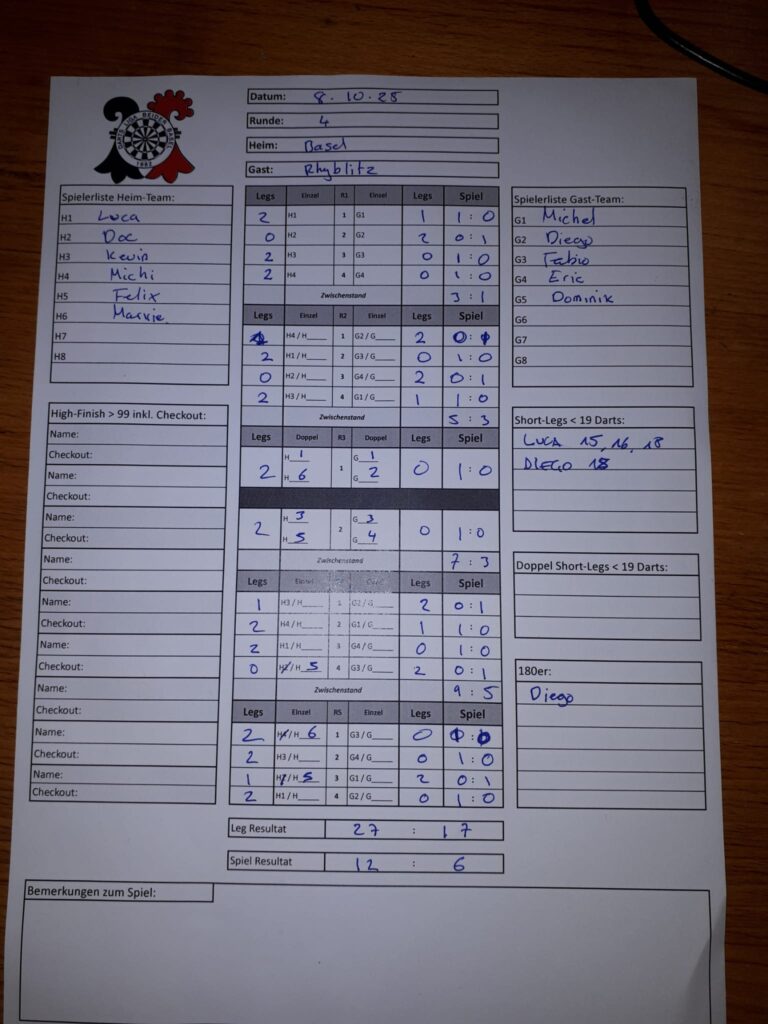 DARTS LIGA BEIDER BASEL
1982
Datum: 8.10.25
Runde: 4
Heim: Basel
Gast: Rhyblitz
Spielerliste Heim-Team:
H1 Luca
H2 Doc
H3 Kevin
H4 Michi
H5 Felix
H6
H7
H8
High-Finish > 99 inkl. Checkout:
Name:
Checkout:
Name:
Checkout:
Name:
Checkout:
Name:
Checkout:
Name:
Checkout:
Name:
Checkout:
Name:
Checkout:
Name:
Checkout:
Name:
Checkout:
Legs Einzel R1 Einzel Legs Spiel
2 H1 1 G1 1 1:0
0 H2 2 G2 2 0:1
2 H3 3 G3 0 1:0
2 H4 4 G4 0 1:0
Zwischenstand 3:1
Legs Einzel R2 Einzel Legs Spiel
H4 / H____ 1 G2 / G____ 2 0:1
2 H1 / H____ 2 G3 / G____ 0 1:0
0 H2 / H____ 3 G4 / G____ 2 0:1
2 H3 / H____ 4 G1 / G____ 1 1:0
Zwischenstand 5:3
Legs Doppel R3 Doppel Legs Spiel
H 1 G 1
2 1 0 1:0
H 6 G 2
H 3 G 3
2 2 0 1:0
H 5 G 4
Zwischenstand 7:3
Legs Einzel Legs Spiel
1 H3 / H____ 1 G2 / G____ 2 0:1
2 H4 / H____ 2 G1 / G____ 1 1:0
2 H1 / H____ 3 G4 / G____ 0 1:0
0 / H 5 4 G3 / G____ 2 0:1
Zwischenstand 9:5
Legs Einzel R5 Einzel Legs Spiel
2 / H 6 1 G3 / G____ 0
2 H3 / H____ 2 G4 / G____ 0 1:0
1 / H 5 3 G1 / G____ 2 0:1
2 H1 / H____ 4 G2 / G____ 0 1:0
Leg Resultat 27 : 17
Spiel Resultat 12 : 6
Spielerliste Gast-Team:
G1 Michel
G2 Diego
G3 Fabio
G4 Eric
G5 Dominik
G6
G7
G8
Short-Legs < 19 Darts:
LUCA 15, 16, 18
DIEGO 18
Doppel Short-Legs < 19 Darts:
180er:
Diego
Bemerkungen zum Spiel: